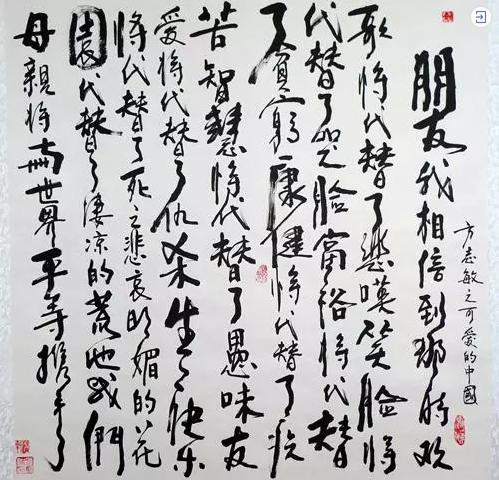 朋友我相信到那時欢
歌将代替了悲嘆笑脸将
代替了哭脸富裕将代替
了貧窮康健将代替了疾
苦智慧将代替了愚味友
愛将代替了仇杀生之快乐
将代替了死之悲哀明媚的花
園代替了凄凉的荒地我們
母親将与世界平等携手了
方志敏之可愛的中國